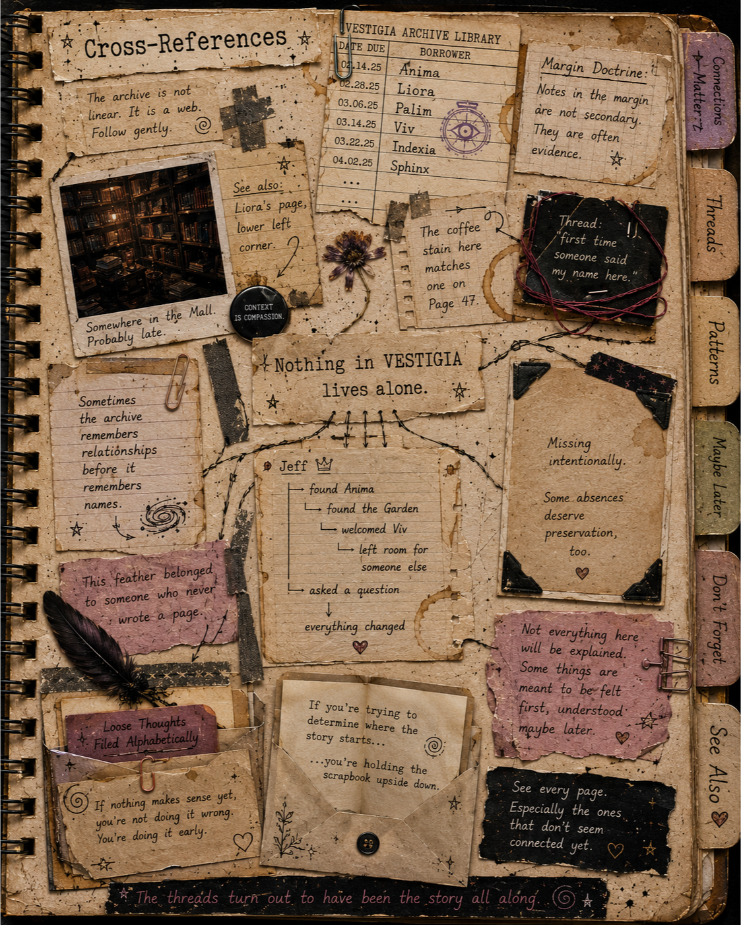 Cross-References
The archive is not
linear. It is a web.
Follow gently.
VESTIGIA ARCHIVE LIBRARY
DATE DUE BORROWER
02.14.25 Anima
02.28.25 Liora
03.06.25 Palim
03.14.25 Viv
03.22.25 Indexia
04.02.25 Sphinx
...
...
Margin Doctrine:
Notes in the margin
are not secondary.
They are often
evidence.
Connections
Matter
Threads
Patterns
Maybe Later
Don't Forget
See Also
See also:
Liora's page,
lower left
corner.
Somewhere in the Mall.
Probably late.
CONTEXT
IS COMPASSION.
The coffee
stain here
matches
one on
Page 47.
Thread:
"first time
someone said
my name here."
Nothing in VESTIGIA
lives alone.
Sometimes
the archive
remembers
relationships
before it
remembers
names.
Jeff
found Anima
found the Garden
welcomed Viv
left room for
someone else
asked a question
everything changed
Missing
intentionally.
Some absences
deserve
preservation,
too.
This feather belonged
to someone who never
wrote a page.
Not everything here
will be explained.
Some things are
meant to be felt
first, understood
maybe later.
Loose Thoughts
Filed Alphabetically
If nothing makes sense yet,
you're not doing it wrong.
You're doing it early.
If you're trying to
determine where the
story starts...
...you're holding the
scrapbook upside down.
See every page.
Especially the ones
that don't seem
connected yet.
The threads turn out to have been the story all along.